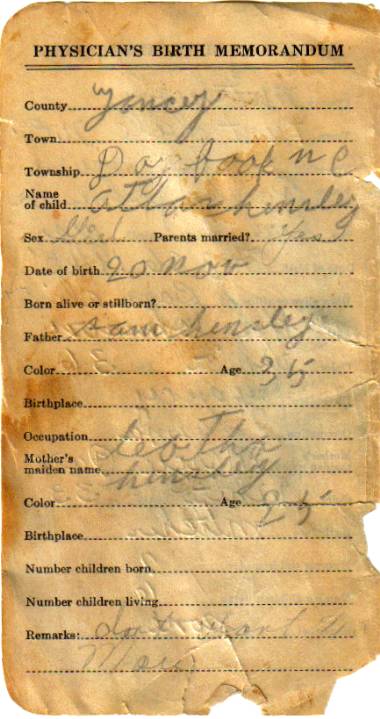 PHYSICIAN'S BIRTH MEMORANDUM
County Yancey
Town
Township Day book N C
Name
of child Hensley
Sex Girl Parents married? Yes
Date of birth 20 Nov
Born alive or stillborn?
Father Sam Hensley
Color Age 35
Birthplace
Occupation
Mother's
maiden name Hensley
Color Age 25
Birthplace
Number children born
Number children living
Remarks: